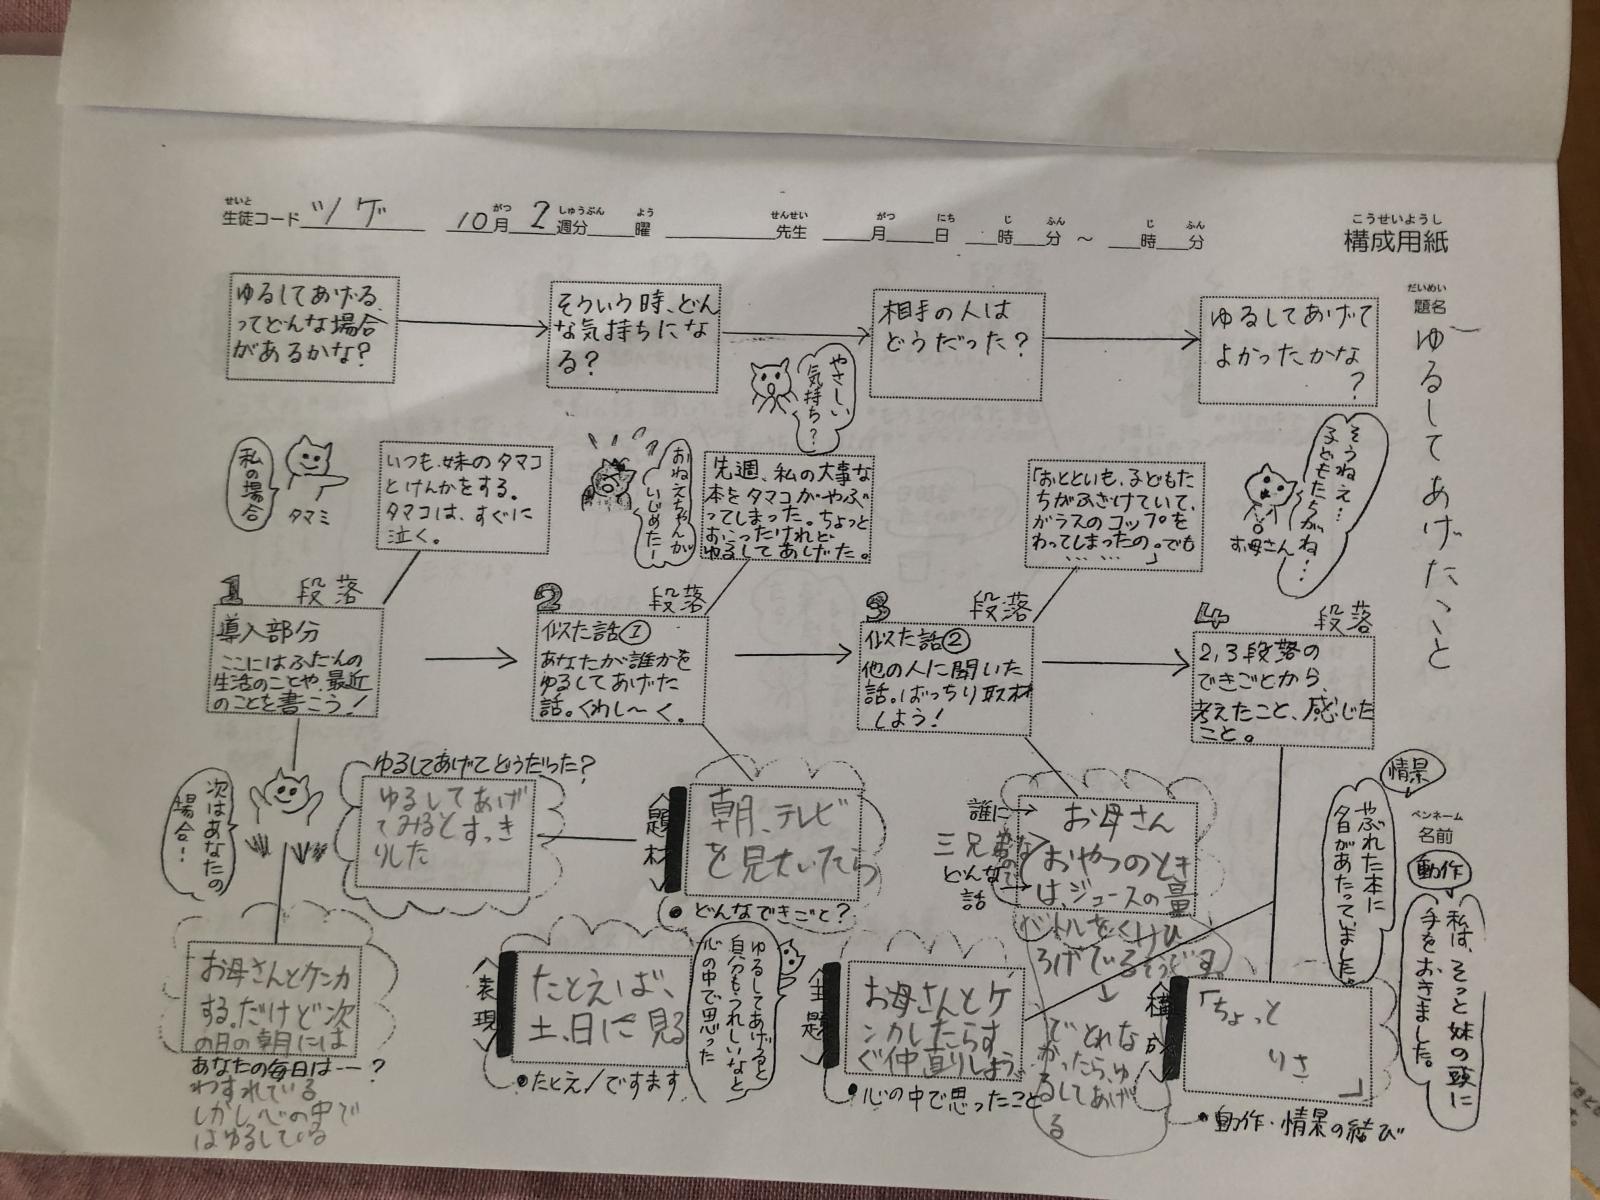 せいと
生徒コード ツゲ
がつ しゅうぶん よう
10月 2週分 曜
せんせい
先生
がつ にち じ ふん じ ふん
月 日 時 分 ～ 時 分
こうせいようし
構成用紙
だいめい
題名
ゆるしてあげたこと
ゆるしてあげる
ってどんな場合
があるかな?
そういう時、どん
な気持ちにな
る?
相手の人は
どうだった?
ゆるしてあげて
よかったかな
?
私の場合
タマミ
いつも、妹のタマコ
とけんかをする。
タマコは、すぐに
泣く。
おねえちゃんが
いじめたー
やさしい
気持ち?
先週、私の大事な
本をタマコがやぶ
ってしまった。ちょっと
おこったけれど
ゆるしてあげた。
「おとといも、子どもた
ちがふざけていて、
ガラスのコップを
わってしまったの。でも
……」
そうねえ…
子どもたちがね…
お母さん
1 段落
導入部分
ここにはふだんの
生活のことや、最近
のことを書こう!
2 段落
似た話①
あなたが誰かを
ゆるしてあげた
話。くわし～く。
3 段落
似た話②
他の人に聞いた
話。ばっちり取材
しよう!
4 段落
2,3段落の
できごとから、
考えたこと、感じた
こと。
次はあなたの
場合…
ゆるしてあげてどうだった?
ゆるしてあげ
てみるとすっき
りした
<題材>
朝、テレビ
を見せいたら
●どんなできごと?
誰に→
三兄弟なので
どんな
話→
お母さん
おやつのとき
は、ジュースの量
バトルをくりひ
ろげているそうです。
↓
でとれな
かったら、ゆ
るしてあげ
る
情景
やぶれた本に
夕日があたっていました。
ペンネーム
名前
動作
私は、そっと妹の頭に
手をおきました。
お母さんとケンカ
する。だけど次
の日の朝には
あなたの毎日は…?
わすれている
しかし、心の中で
はゆるしている
<表現>
たとえば、
土、日に見る
●たとえ/ですます
ゆるしてあげると
自分も、うれしいなと
心の中で思った
<主題>
お母さんとケ
ンカしたらす
ぐ仲直りしよう。
●心の中で思ったこと
<構成>
「ちょっと
りさ
」
●動作・情景の結び